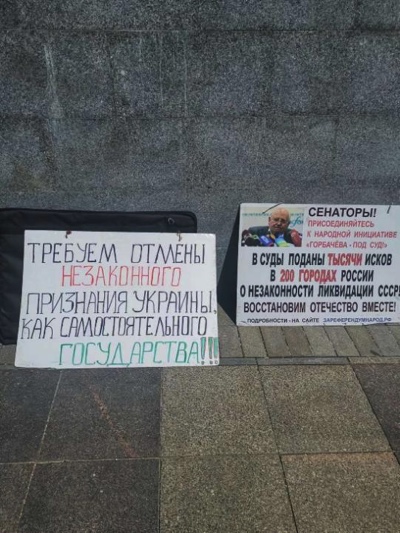 ТРЕБУЕМ ОТМЕНЫ
НЕЗАКОННОГО
ПРИЗНАНИЯ УКРАИНЫ
КАК САМОСТОЯТЕЛЬНОГО
ГОСУДАРСТВА!!!
СЕНАТОРЫ!
ПРИСОЕДИНЯЙТЕСЬ
К НАРОДНОЙ ИНИЦИАТИВЕ
"ГОРБАЧЁВА - ПОД СУД!"
В СУДЫ ПОДАНЫ ТЫСЯЧИ ИСКОВ
В 200 ГОРОДАХ РОССИИ
О НЕЗАКОННОСТИ ЛИКВИДАЦИИ СССР!
ВОССТАНОВИМ ОТЕЧЕСТВО ВМЕСТЕ!
ПОДРОБНОСТИ - НА САЙТЕ ЗАРЕФЕРЕНДУМНАРОД.РФ